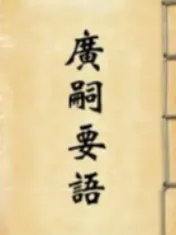 廣嗣要語